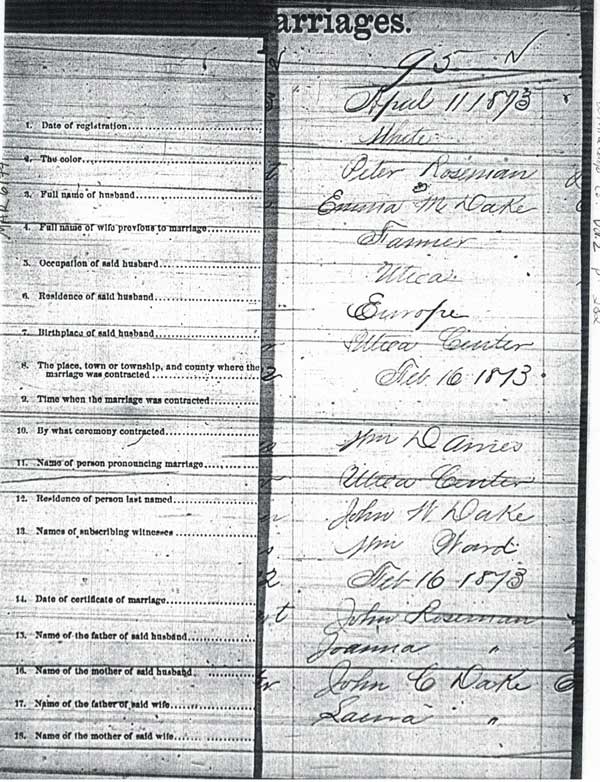 arriages.
95 N
April 11 1873
1. Date of registration
White
2. The color
Peter Roseman
3. Full name of husband
Emma M Dake
4. Full name of wife previous to marriage
Farmer
5. Occupation of said husband
Utica
6. Residence of said husband
Europe
7. Birthplace of said husband
Utica Center
8. The place, town or township, and county where the
marriage was contracted
Feb 16 1873
9. Time when the marriage was contracted
10. By what ceremony contracted
Wm D Ames
11. Name of person pronouncing marriage
Utica Center
12. Residence of person last named
John W Dake
13. Names of subscribing witnesses
Wm Ward
Feb 16 1873
14. Date of certificate of marriage
John Roseman
15. Name of the father of said husband
Joanna "
16. Name of the mother of said husband
John C Dake
17. Name of the father of said wife
Laura "
18. Name of the mother of said wife